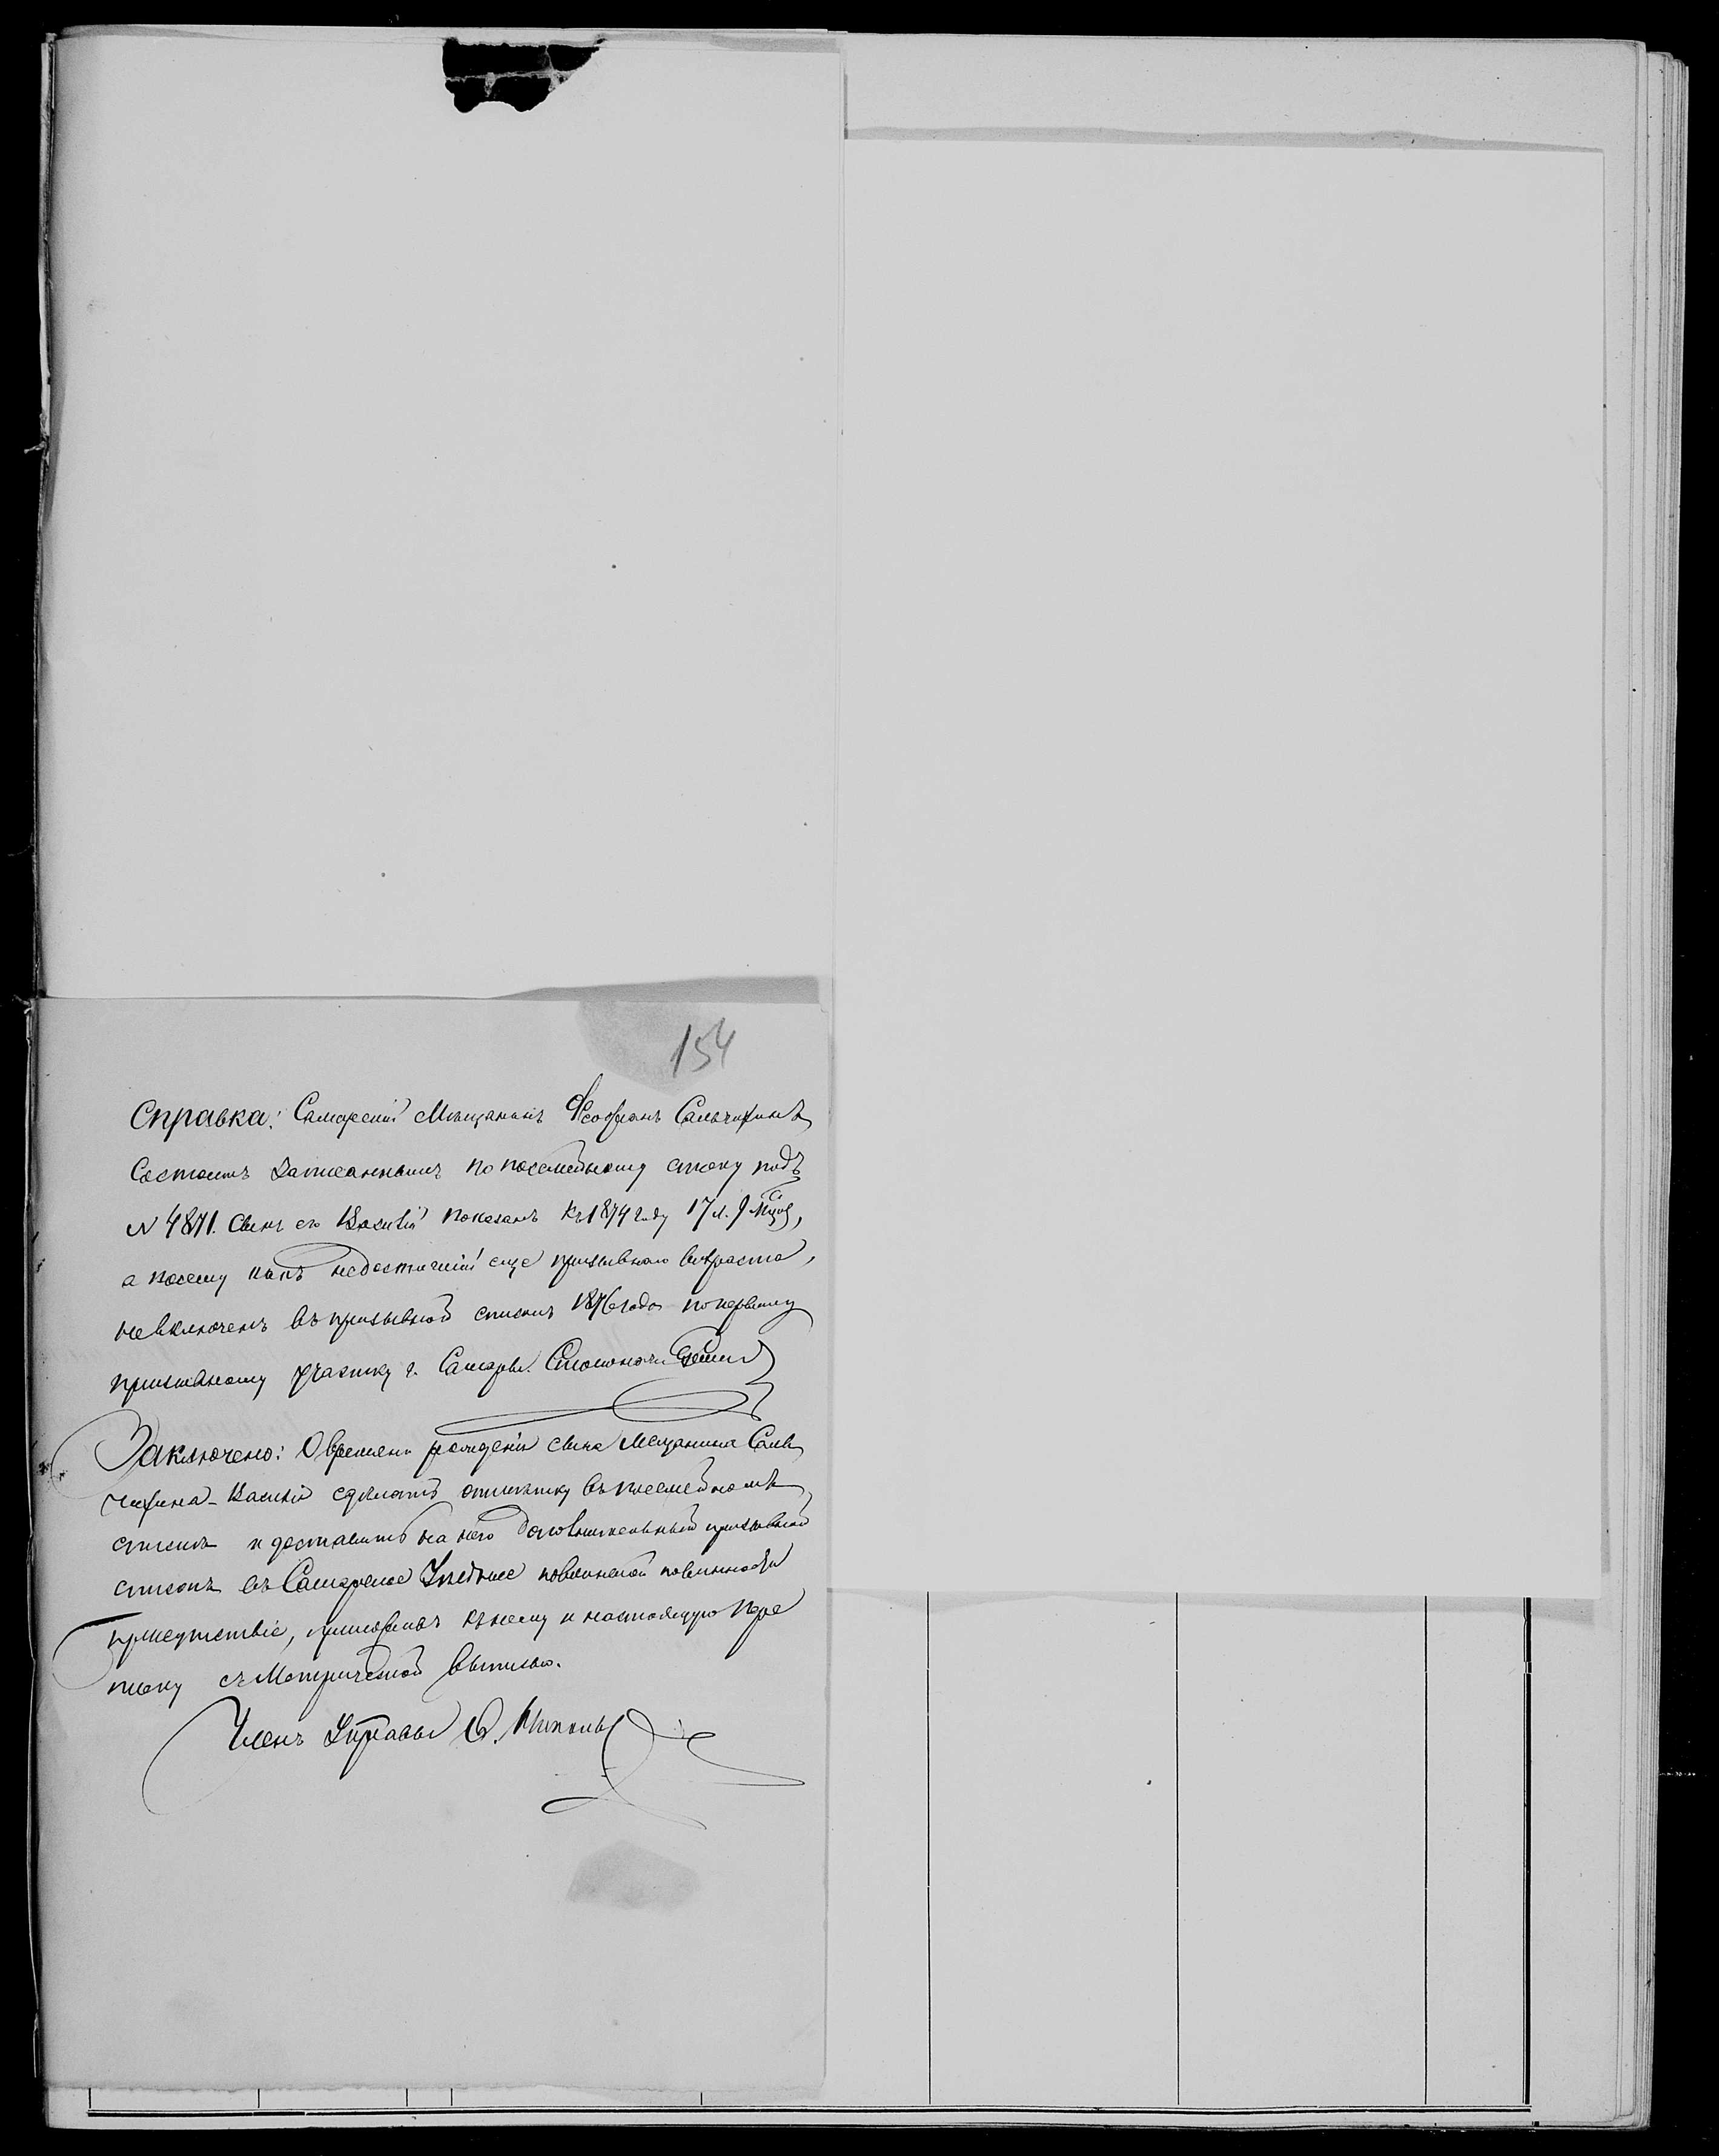 154
Справка: Самарскій Мѣщанинъ Ѳеофанъ Сальчихинъ
Состоитъ записаннымъ по посемейному списку подъ
№ 4871. Сынъ его Василій показанъ къ 1874 году 17 л. 9 мцовъ,
а посему какъ недостигшій еще призывнаго возраста,
не включенъ въ призывной списокъ 1876 года по первому
призывному участку г. Самары.
Заключено: О времени рожденія сына Мещанина Саль
чихина - Василія сдѣлать отмѣтку въ посемейномъ
списке и доставить на него дополнительный призывной
списокъ въ Самарское Уѣздное по воинской повинности
присутствіе, приложивъ къ нему и настоящую пере
писку съ Метрической выписью.
Членъ Управы